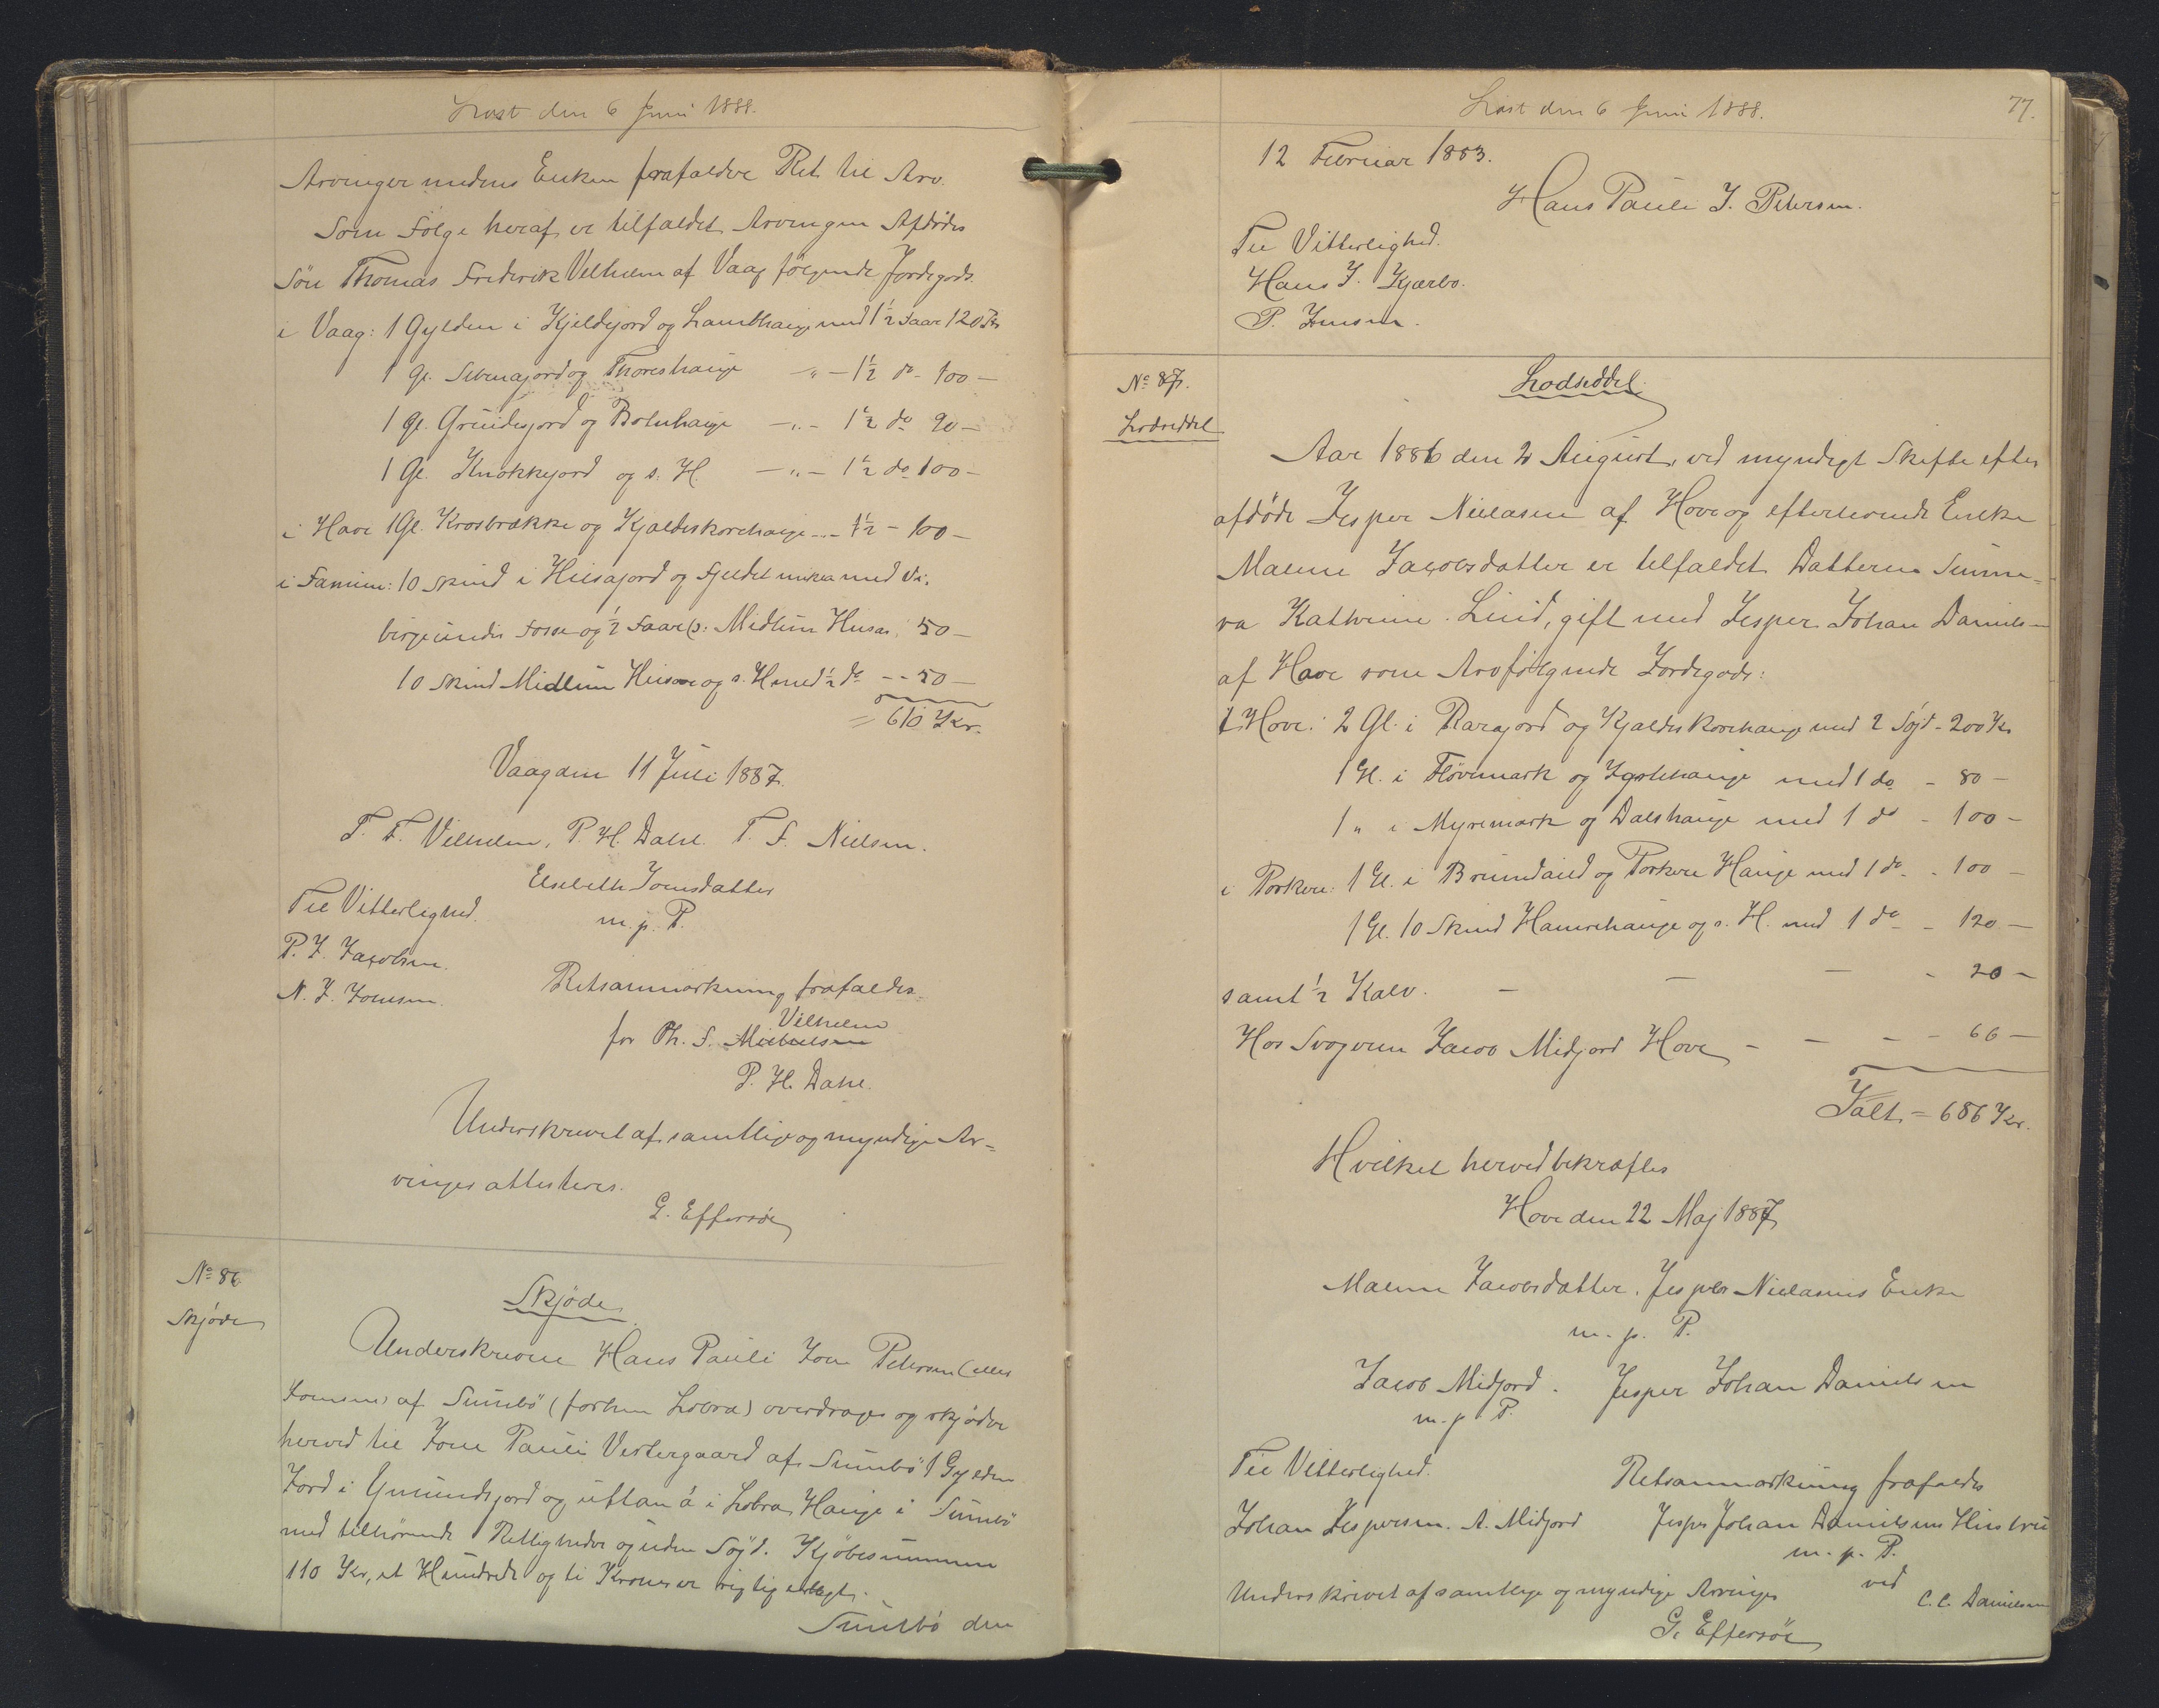 Læst den 6 Juni 1888.
Arvinger medens Enken frafaldere Ret til Arv.
Som Følge heraf er tilfaldet Arvingen Afdødes
Søn Thomas Frederik Vilhelm af Vaag følgende Jordegods
i Vaag: 1 Gylden i Kjeldejord og Lambhauge med 1½ Faar 120 Kr
1 Gl. Sebenajord og Thoreshauge -"- 1½ do - 100 -
1 Gl. Grundesjord og Botnhauge -"- 1½ do 90 -
1 Gl. Knokkejord og s. H. -"- 1½ do 100 -
i Hove 1 Gl. Krosbrække og Kjaldeskorehauge -"- 1½ - 100 -
i Famien: 10 Skind i Husajord og Fjeldet med
under Fosse og ½ Faar (: Midlun Husar. 50 -
10 Skind Midlun Husar og s. H med ½ do - - 50 -
= 610 Kr.
Vaag den 11 Juli 1887.
T. F. Vilhelm, P. H. Dahl. T. F. Nielsen.
Elsebeth Joensdatter
m. p. P.
Til Vitterlighed.
P. J. Jacobsen.
N. J. Joensen.
Retsanmærkning frafaldes.
Vilhelm
for Th. F. Michelsen
P. H. Dahl.
Underskrevet af samtlige og myndige Ar=
vinger attesteres.
G. Effersøe
No 86.
Skjøde
Skjøde
Underskrevne Hans Pauli Joen Petersen (eller
Joensen) af Sumbø (forhen Lobra) overdrager og skjøder
herved til Joen Pauli Vestergaard af Sumbø 1 Gylden
Jord i Gmundsjord og uttan á i Lobra Hauge i Sumbø
med tilhørende Rettigheder og uden Søyd. Kjøbesummen
110 Kr, et Hundrede og ti Kroner er rigtig erlagt.
Sumbø den
Læst den 6 Juni 1888.
77.
12 Februar 1883.
Hans Pauli J. Petersen.
Til Vitterlighed.
Hans J. Kjærbo.
P. Jensen.
No 87.
Lodseddel
Lodseddel.
Aar 1886 den 2 August, ved myndigt Skifte efter
afdøde Jesper Nielasen af Hove og efterlevende Enke
Malene Jacobsdatter er tilfaldet Datteren Sunne=
va Kathrine Lind, gift med Jesper Johan Danielsen
af Hove som Arv følgende Jordegods:
i Hove: 2 Gl. i Rarajord og Kjaldeskorehauge med 2 Søyd - 200 Kr
1 Gl. i Fløvemark og med 1 do - 80 -
1 " i Myremark og Dalshauge med 1 do - 100 -
i Porkere: 1 Gl. i Brundaud og Porkere Hauge med 1 do - 100 -
1 Gl. 10 Skind Hamrehauge og s. H. med 1 do - 120 -
samt ½ Kalv. - - - - 20 -
Hos Svogeren Jacob Midjord Hove - - - - 66 -
Ialt = 686 Kr.
Hvilket herved bekræftes
Hove den 22 Maj 1887
Malene Jacobsdatter, Jesper Nielasens Enke
m. p. P.
Jacob Midjord. Jesper Johan Danielsen
m. p. P.
Til Vitterlighed.
Johan Jespersen. A. Midjord
Retsanmærkning frafaldes
Jesper Johan Danielsens Hustru
m. p. P.
ved
C. C. Danielsen
Underskrevet af samtlige og myndige Arvinger
G. Effersøe